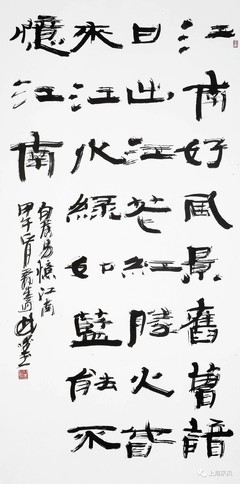 江南好風景舊曾諳
日出江花紅勝火春
來江水綠如藍能不
憶江南
白居易憶江南
甲午正月